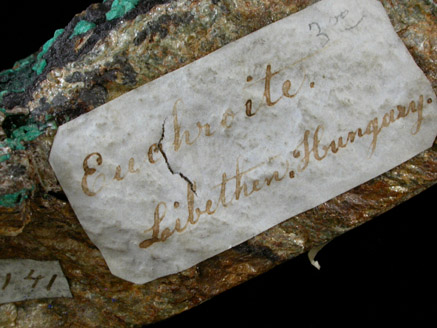 300
Euchroite.
Libethen. Hungary.
141